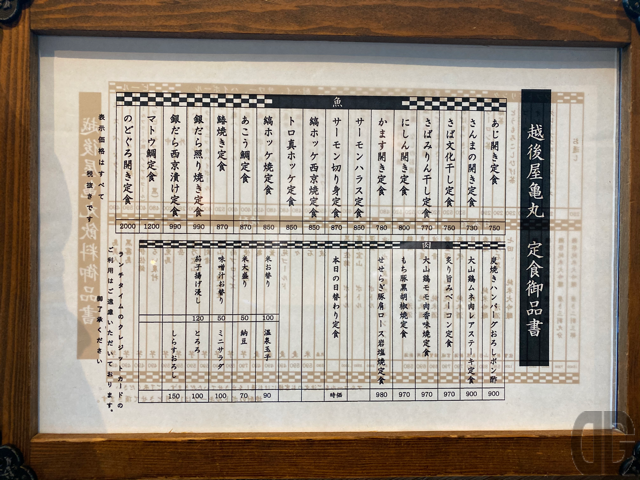 越後屋亀丸 定食御品書
魚
あじ開き定食 750
さんまの開き定食 730
さば文化干し定食 750
さばみりん干し定食 770
にしん開き定食 800
かます開き定食 780
サーモンハラス定食 850
サーモン切り身定食 870
縞ホッケ西京焼定食 850
トロ真ホッケ定食 850
縞ホッケ焼定食 850
あこう鯛定食 870
鰆焼き定食 870
銀だら照り焼き定食 990
銀だら西京漬け定食 990
マトウ鯛定食 1200
のどぐろ開き定食 2000
肉
炭焼きハンバーグおろしポン酢 900
大山鶏ムネ肉レアステーキ定食 900
炙り旨みベーコン定食 970
大山鶏モモ肉香味焼定食 970
もち豚黒胡椒焼定食 970
せせらぎ豚肩ロース岩塩焼定食 980
本日の日替わり定食 時価
米お替り 100
米大盛り 50
味噌汁お替り 50
茄子揚げ浸し 120
温泉玉子 90
納豆 70
ミニサラダ 100
とろろ 100
しらすおろし 150
表示価格はすべて
税抜きです
ランチタイムのクレジットカードの
ご利用はご遠慮いただいております。
御了承ください